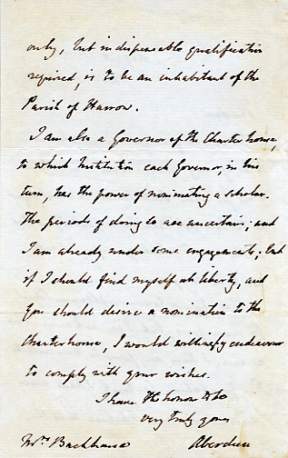 only, but indispensable qualification
required, is to be an inhabitant of the
Parish of Harrow.
I am also a Governor of the Charter house,
to which Institution each Governor, in his
turn, has the power of nominating a scholar.
The periods of doing so are uncertain; and
I am already under some engagements; but
if I should find myself at liberty, and
you should desire a nomination to the
Charterhouse, I would willingly endeavour
to comply with your wishes.
I have the honor to be
very truly yours
Mrs Backhouse Aberdeen